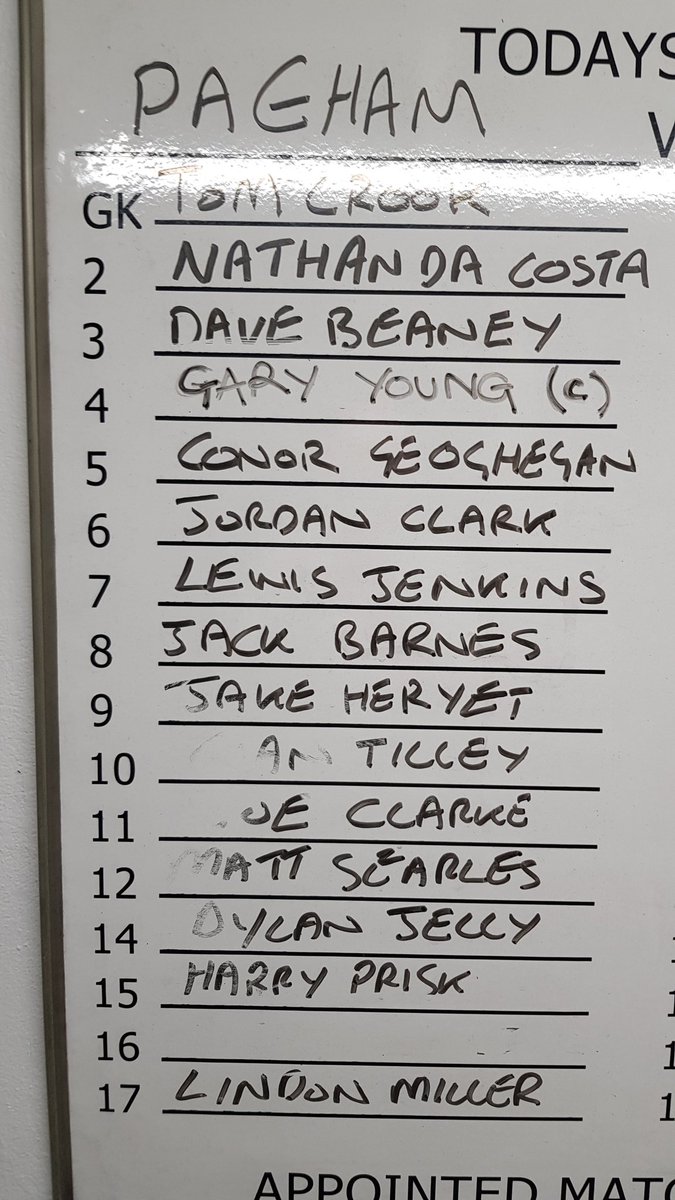 TODAYS
PAGHAM
V
GK TOM CROOK
2 NATHAN DA COSTA
3 DAVE BEANEY
4 GARY YOUNG (C)
5 CONOR GEOGHEGAN
6 JORDAN CLARK
7 LEWIS JENKINS
8 JACK BARNES
9 JAKE HERYET
10 AN TILLEY
11 OE CLARKE
12 MATT SEARLES
14 DYLAN JELLY
15 HARRY PRISK
16
17 LINDON MILLER
APPOINTED MATC